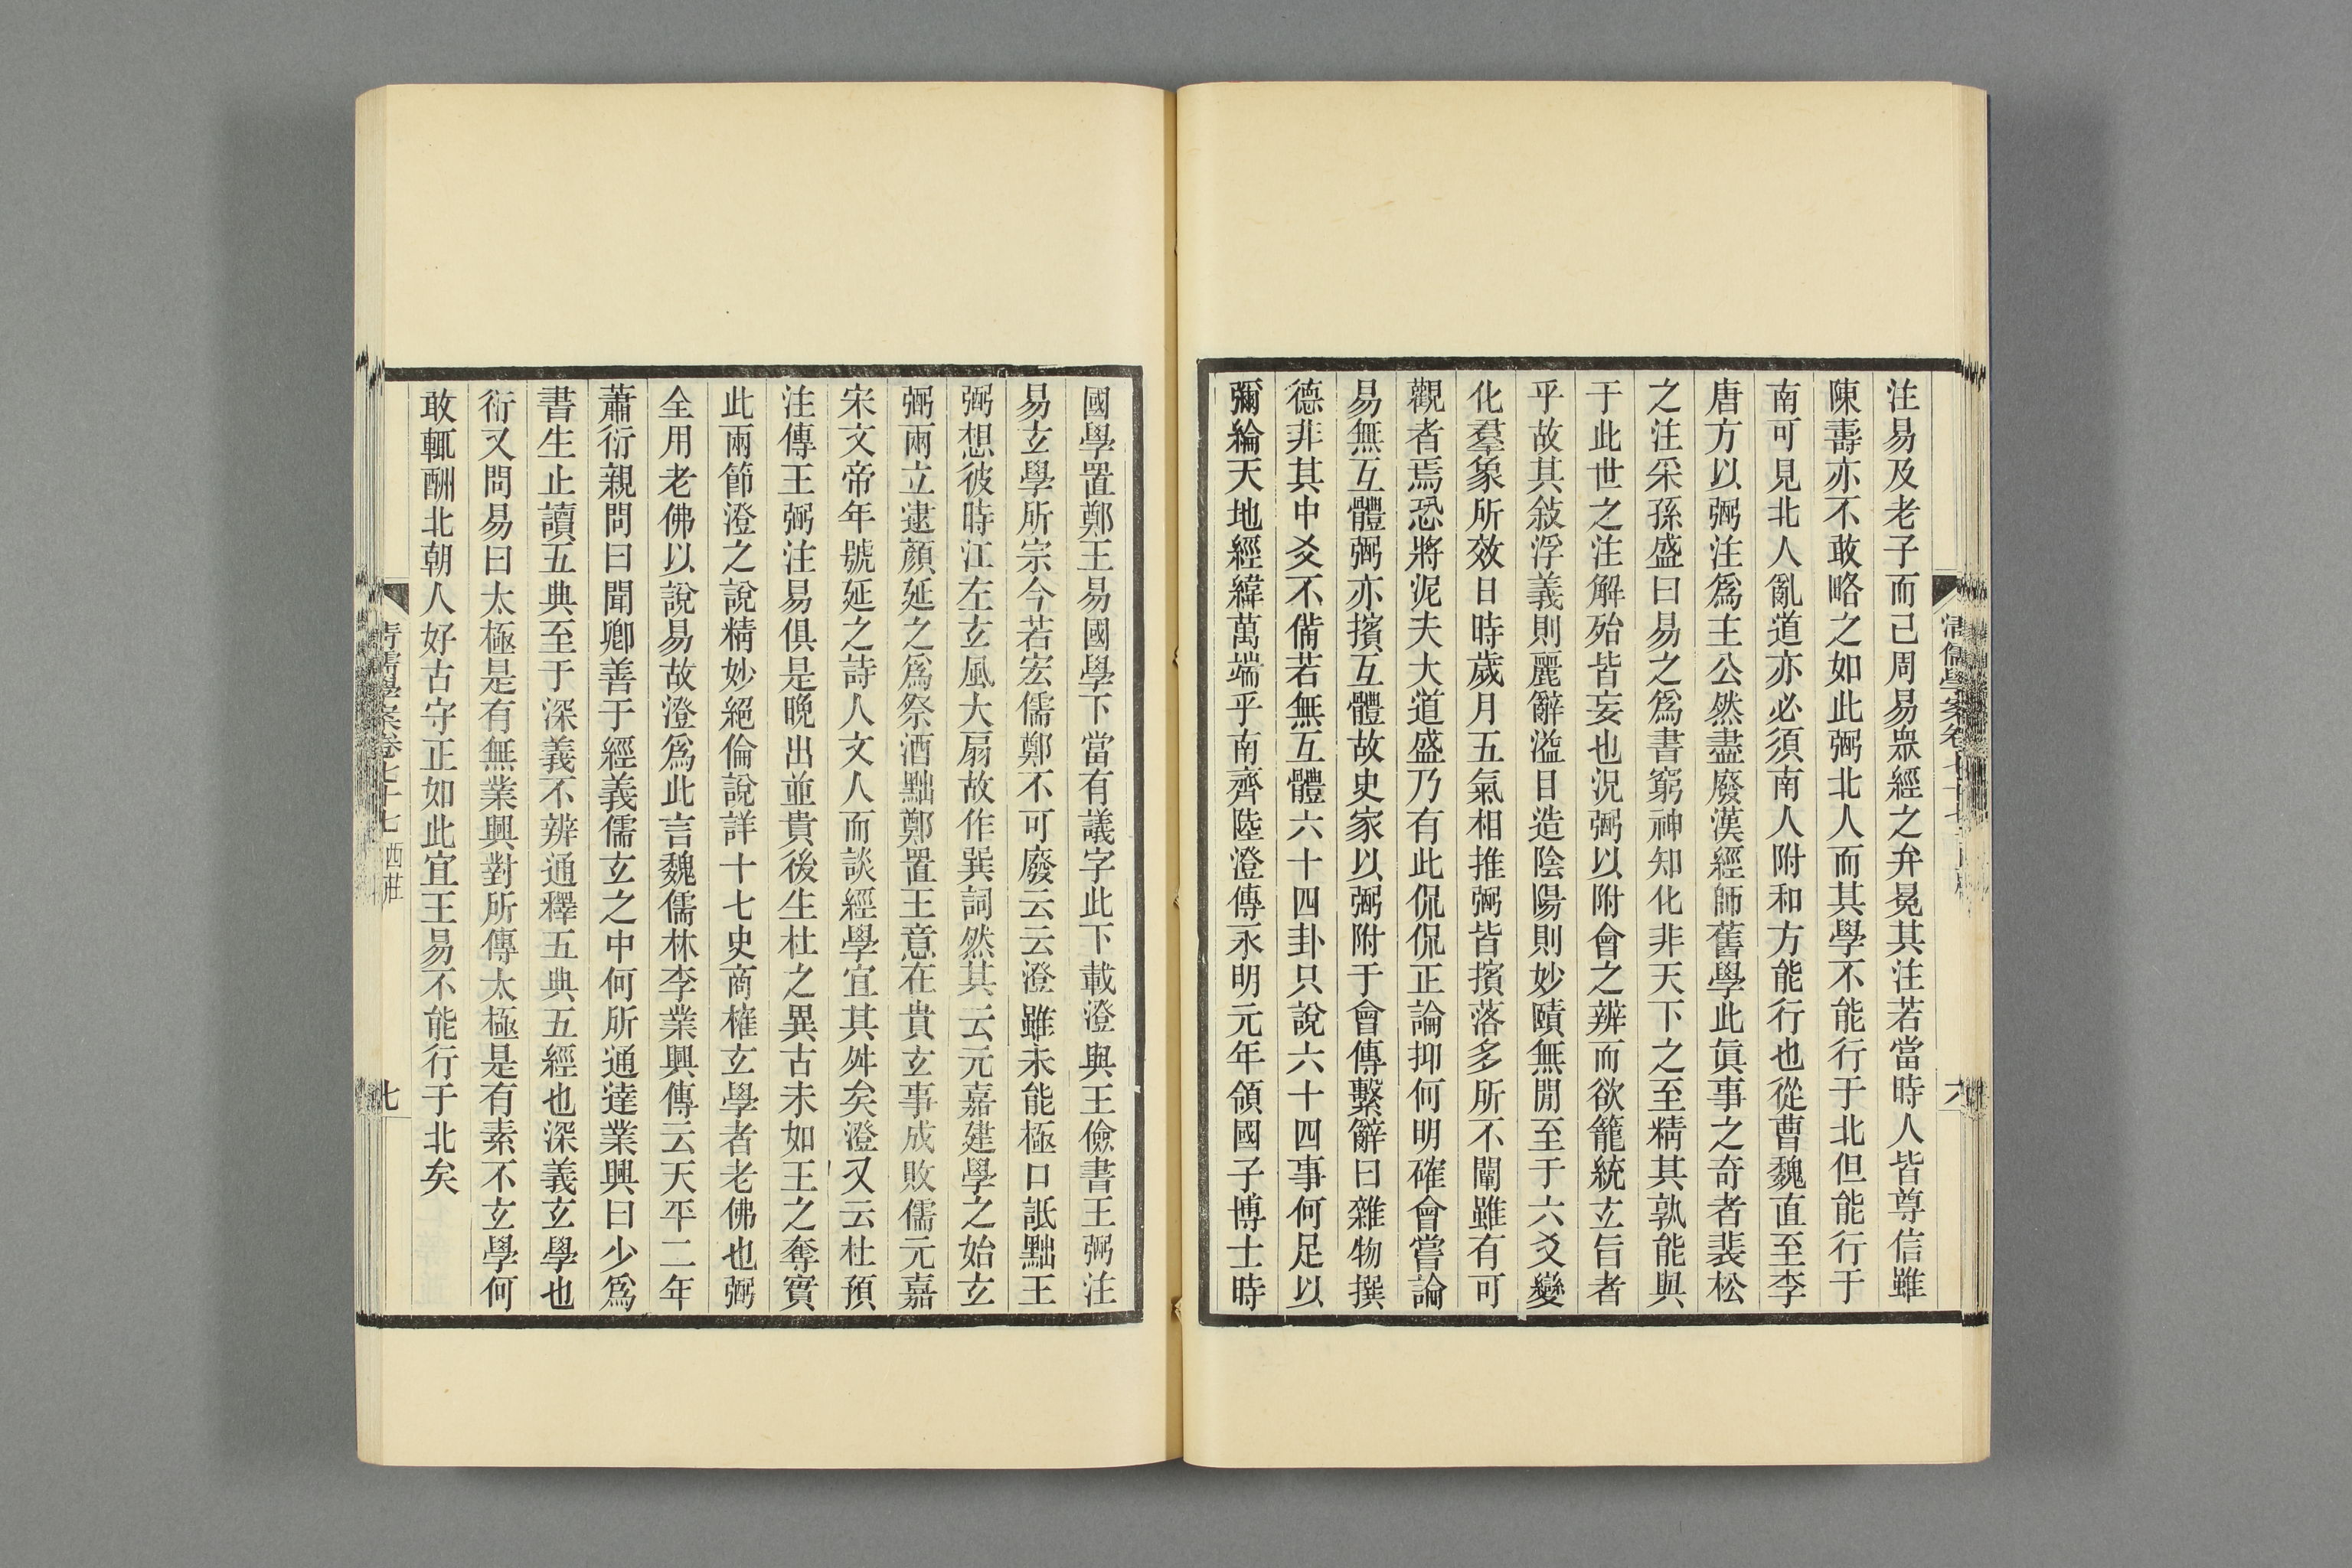 注易及老子而已周易眾經之弁冕其注若當時人皆尊信雖
陳壽亦不敢略之如此弼北人而其學不能行于北但能行于
南可見北人亂道亦必須南人附和方能行也從曹魏直至李
唐方以弼注爲主公然盡廢漢經師舊學此眞事之奇者裴松
之注采孫盛曰易之爲書窮神知化非天下之至精其孰能與
于此世之注解殆皆妄也況弼以附會之辨而欲籠統玄旨者
乎故其敍浮義則麗辭溢目造陰陽則妙賾無閒至于六爻變
化羣象所效日時歲月五氣相推弼皆擯落多所不闡雖有可
觀者焉恐將泥夫大道盛乃有此侃侃正論抑何明確會嘗論
易無互體弼亦擯互體故史家以弼附于會傳繫辭曰雜物撰
德非其中爻不備若無互體六十四卦只說六十四事何足以
彌綸天地經緯萬端乎南齊陸澄傳永明元年領國子博士時
國學置鄭王易國學下當有議字此下載澄與王儉書王弼注
易玄學所宗今若宏儒鄭不可廢云云澄雖未能極口詆黜王
弼想彼時江左玄風大扇故作巽詞然其云元嘉建學之始玄
弼兩立逮顏延之爲祭酒黜鄭置王意在貴玄事成敗儒元嘉
宋文帝年號延之詩人文人而談經學宜其舛矣澄又云杜預
注傳王弼注易俱是晚出並貴後生杜之異古未如王之奪實
此兩節澄之說精妙絕倫說詳十七史商榷玄學者老佛也弼
全用老佛以說易故澄爲此言魏儒林李業興傳云天平二年
蕭衍親問曰聞卿善于經義儒玄之中何所通達業興曰少爲
書生止讀五典至于深義不辨通釋五典五經也深義玄學也
衍又問易曰太極是有無業興對所傳太極是有素不玄學何
敢輒酬北朝人好古守正如此宜王易不能行于北矣
清儒學案卷七十七 西莊
七